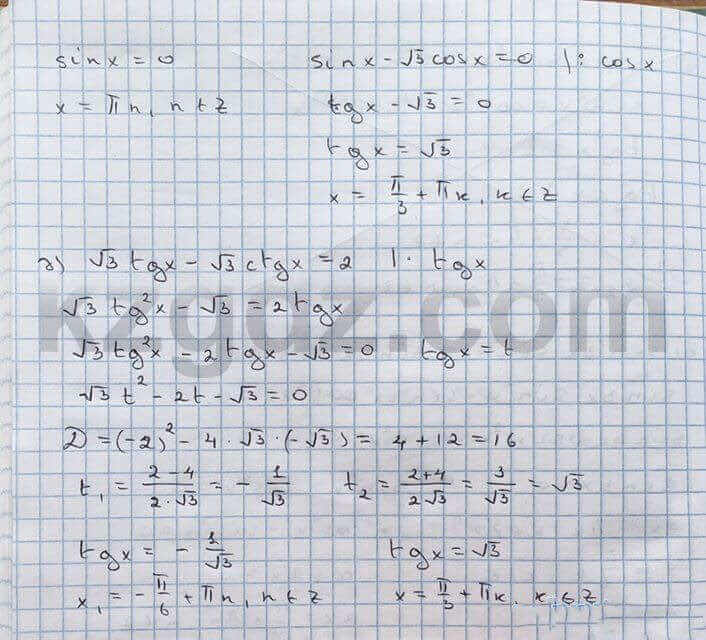 sin x = 0
x = πn, n ∈ Z
sin x - √3 cos x = 0 |: cos x
tg x - √3 = 0
tg x = √3
x = π/3 + πk, k ∈ Z
2) √3 tg x - √3 ctg x = 2 | · tg x
√3 tg²x - √3 = 2 tg x
√3 tg²x - 2 tg x - √3 = 0 tg x = t
√3 t² - 2t - √3 = 0
D = (-2)² - 4 · √3 · (-√3) = 4 + 12 = 16
t₁ = (2-4)/(2·√3) = - 1/√3 t₂ = (2+4)/(2√3) = 3/√3 = √3
tg x = - 1/√3 tg x = √3
x₁ = - π/6 + πn, n ∈ Z x = π/3 + πk, k ∈ Z
kzgdz.com